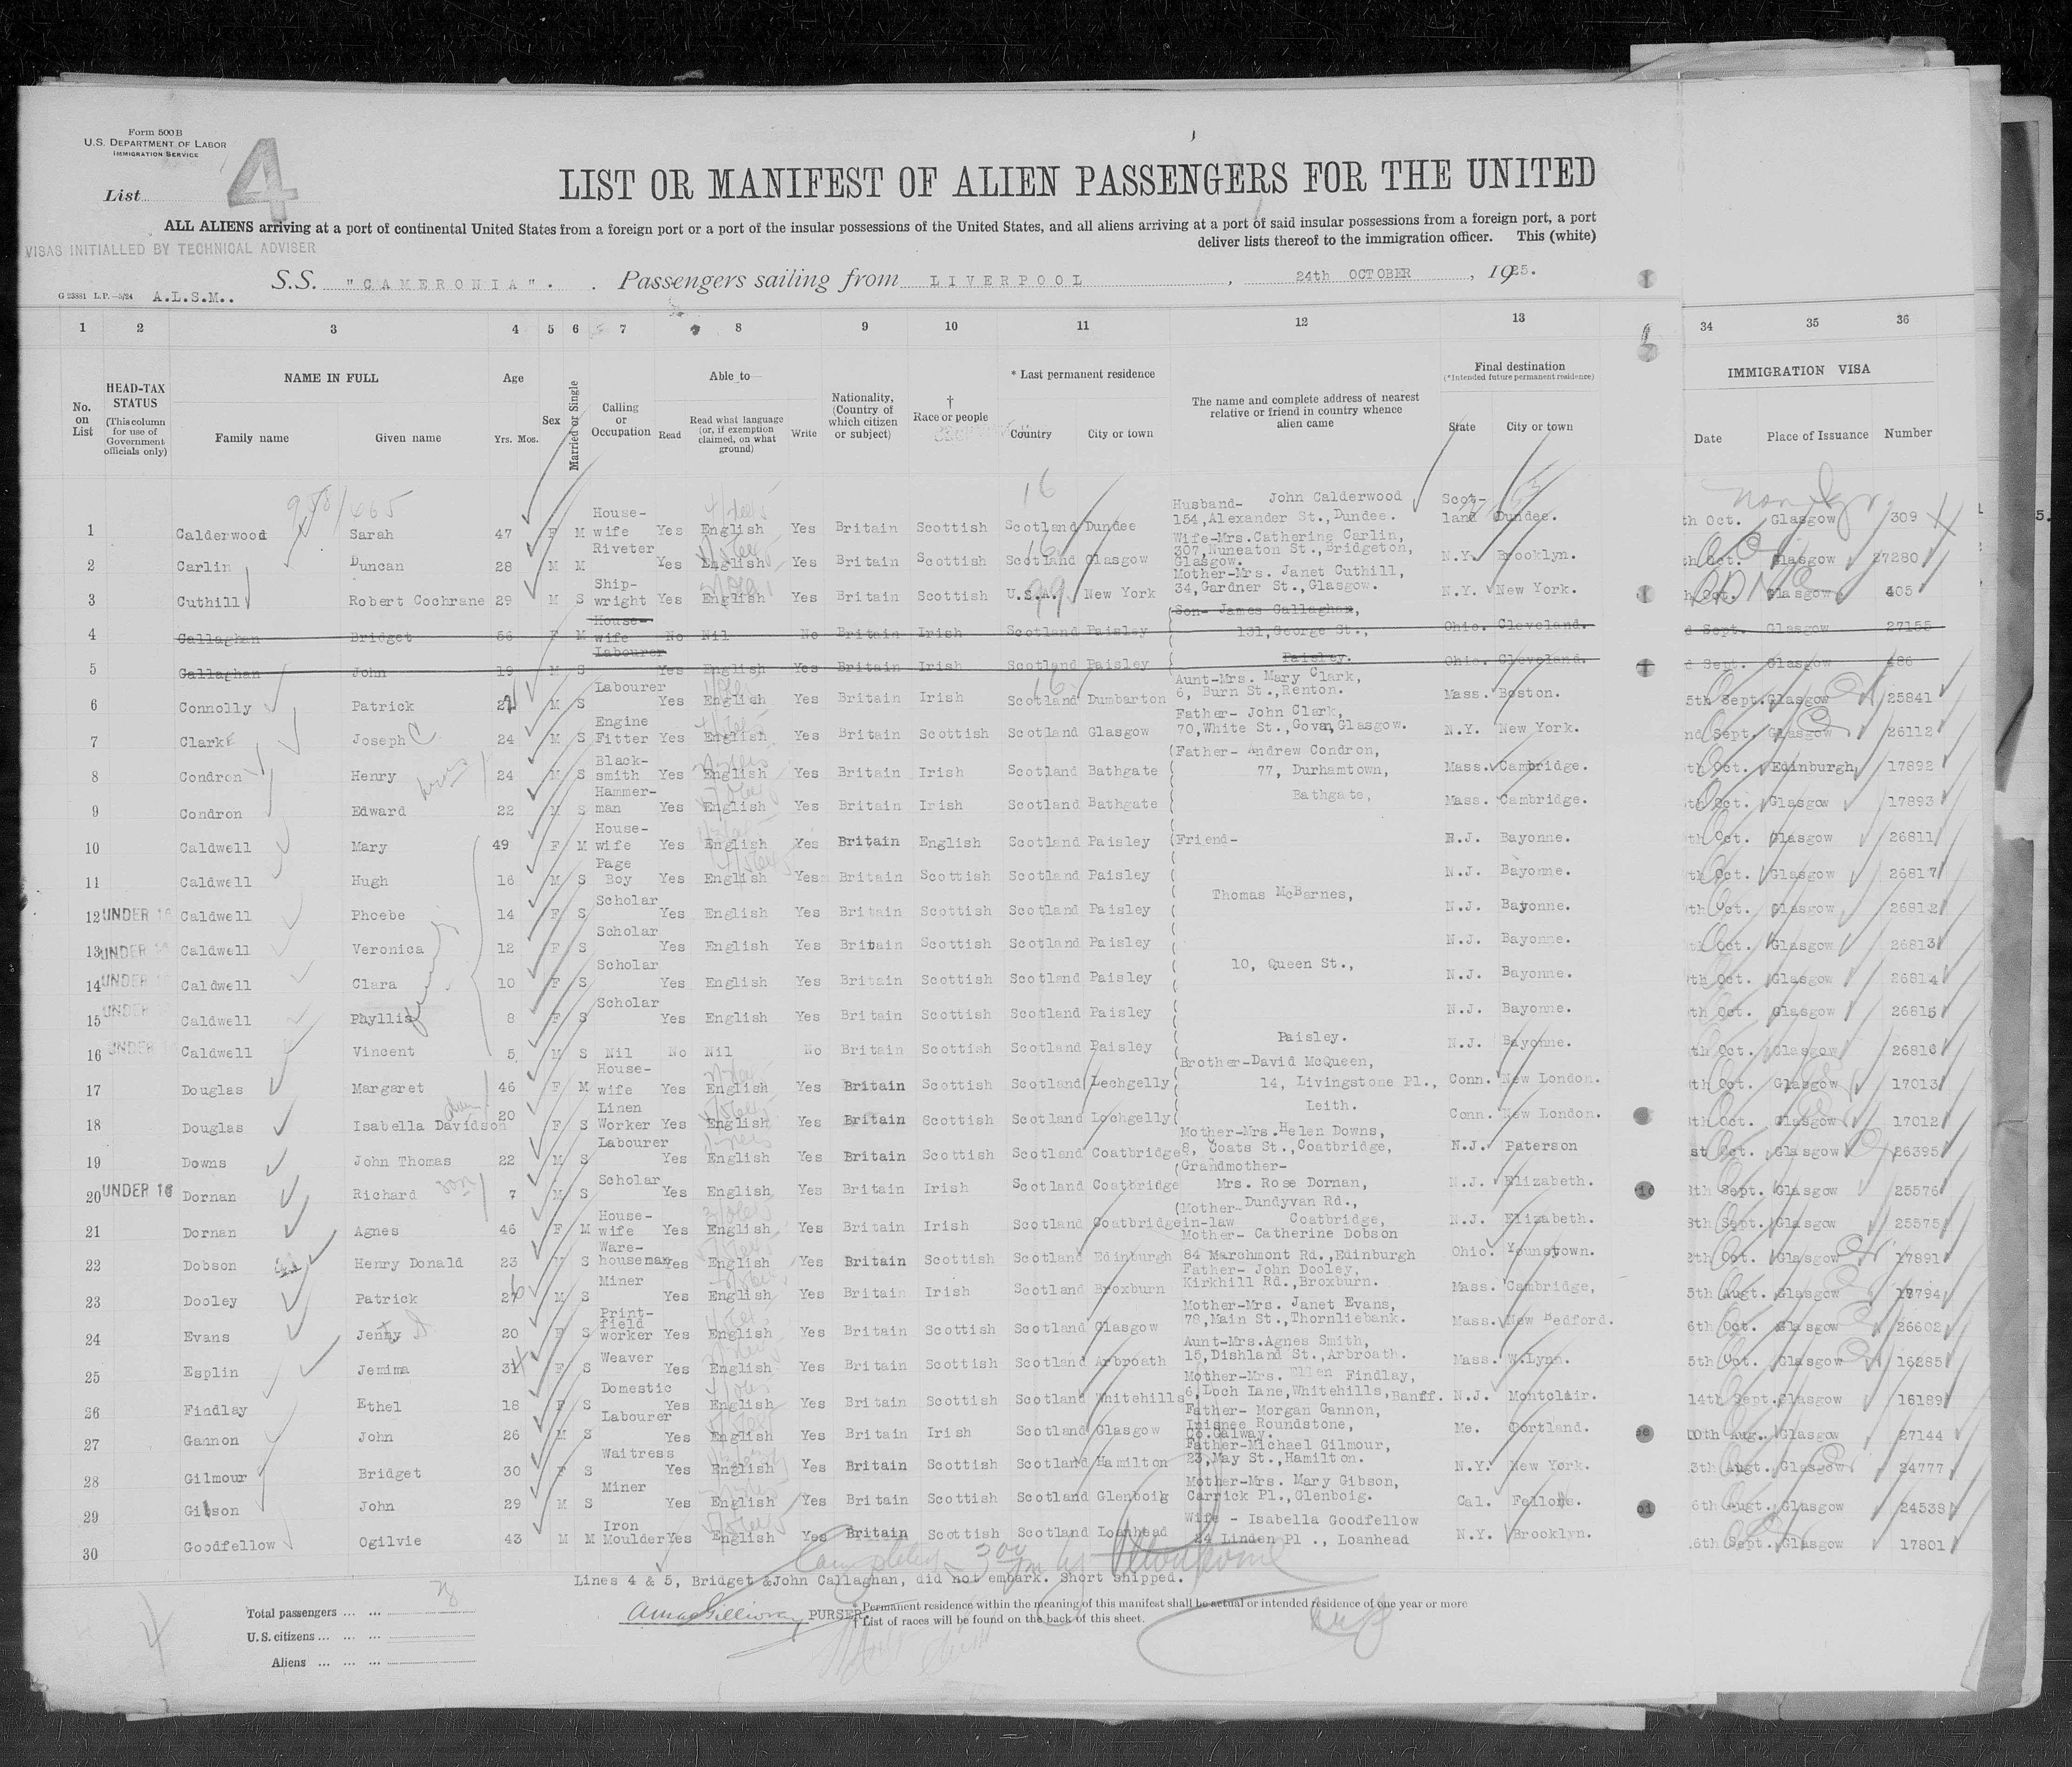 Form 500B
U.S. DEPARTMENT OF LABOR
IMMIGRATION SERVICE
List 4
LIST OR MANIFEST OF ALIEN PASSENGERS FOR THE UNITED
ALL ALIENS arriving at a port of continental United States from a foreign port or a port of the insular possessions of the United States, and all aliens arriving at a port of said insular possessions from a foreign port, a port
deliver lists thereof to the immigration officer. This (white)
VISAS INITIALLED BY TECHNICAL ADVISER
S.S. "CAMERONIA". Passengers sailing from LIVERPOOL, 24th OCTOBER, 1925.
G 23881 L.P.—5/24 A.L.S.M..
1 2 3 4 5 6 7 8 9 10 11 12 13 34 35 36
No. on List
HEAD-TAX STATUS (This column for use of Government officials only)
NAME IN FULL
Family name Given name
Age
Yrs. Mos.
Sex
Married or Single
Calling or Occupation
Able to
Read
Read what language (or, if exemption claimed, on what ground)
Write
Nationality, (Country of which citizen or subject)
† Race or people
* Last permanent residence
Country City or town
The name and complete address of nearest relative or friend in country whence alien came
Final destination
(*Intended future permanent residence)
State City or town
IMMIGRATION VISA
Date Place of Issuance Number
1 Calderwood Sarah 47 F M House-wife Yes English Yes Britain Scottish Scotland Dundee Husband- John Calderwood 154,Alexander St.,Dundee. Scot-land Dundee. th Oct. Glasgow 309
2 Carlin Duncan 28 M M Riveter Yes English Yes Britain Scottish Scotland Glasgow Wife-Mrs.Catherine Carlin, 307,Nuneaton St.,Bridgeton, Glasgow. N.Y. Brooklyn. th Oct. Glasgow 27280
3 Cuthill Robert Cochrane 29 M S Ship-wright Yes English Yes Britain Scottish U.S.A. New York Mother-Mrs. Janet Cuthill, 34,Gardner St.,Glasgow. N.Y. New York. h Oct. Glasgow 405
4 Callaghan Bridget 56 F M House-wife No Nil No Britain Irish Scotland Paisley Son- James Callaghan, 131,George St., Ohio. Cleveland. d Sept. Glasgow 27155
5 Callaghan John 19 M S Labourer Yes English Yes Britain Irish Scotland Paisley Paisley. Ohio. Cleveland. d Sept. Glasgow 486
6 Connolly Patrick M S Labourer Yes English Yes Britain Irish Scotland Dumbarton Aunt-Mrs. Mary Clark, 6, Burn St.,Renton. Mass. Boston. 5th Sept. Glasgow 25841
7 Clark Joseph C 24 M S Engine Fitter Yes English Yes Britain Scottish Scotland Glasgow Father- John Clark, 70,White St.,Govan,Glasgow. N.Y. New York. nd Sept. Glasgow 26112
8 Condron Henry 24 M S Black-smith Yes English Yes Britain Irish Scotland Bathgate (Father- Andrew Condron, 77, Durhamtown, Mass. Cambridge. th Oct. Edinburgh 17892
9 Condron Edward 22 M S Hammer-man Yes English Yes Britain Irish Scotland Bathgate Bathgate, Mass. Cambridge. th Oct. Glasgow 17893
10 Caldwell Mary 49 F M House-wife Yes English Yes Britain English Scotland Paisley (Friend- N.J. Bayonne. th Oct. Glasgow 26811
11 Caldwell Hugh 16 M S Page Boy Yes English Yes Britain Scottish Scotland Paisley N.J. Bayonne. th Oct. Glasgow 26817
12 UNDER 16 Caldwell Phoebe 14 F S Scholar Yes English Yes Britain Scottish Scotland Paisley Thomas McBarnes, N.J. Bayonne. th Oct. Glasgow 26812
13 UNDER 16 Caldwell Veronica 12 F S Scholar Yes English Yes Britain Scottish Scotland Paisley N.J. Bayonne. th Oct. Glasgow 26813
14 UNDER 16 Caldwell Clara 10 F S Scholar Yes English Yes Britain Scottish Scotland Paisley 10, Queen St., N.J. Bayonne. th Oct. Glasgow 26814
15 UNDER 16 Caldwell Phyllis 8 F S Scholar Yes English Yes Britain Scottish Scotland Paisley N.J. Bayonne. th Oct. Glasgow 26815
16 UNDER 16 Caldwell Vincent 5 M S Nil No Nil No Britain Scottish Scotland Paisley Paisley. N.J. Bayonne. th Oct. Glasgow 26816
17 Douglas Margaret 46 F M House-wife Yes English Yes Britain Scottish Scotland Lochgelly Brother-David McQueen, 14, Livingstone Pl., Conn. New London. th Oct. Glasgow 17013
18 Douglas Isabella Davidson 20 F S Linen Worker Yes English Yes Britain Scottish Scotland Lochgelly Leith. Conn. New London. th Oct. Glasgow 17012
19 Downs John Thomas 22 M S Labourer Yes English Yes Britain Scottish Scotland Coatbridge Mother-Mrs.Helen Downs, 8, Coats St.,Coatbridge, N.J. Paterson st Oct. Glasgow 26395
20 UNDER 16 Dornan Richard son 7 M S Scholar Yes English Yes Britain Irish Scotland Coatbridge (Grandmother- Mrs. Rose Dornan, N.J. Elizabeth. 8th Sept. Glasgow 25576
21 Dornan Agnes 46 F M House-wife Yes English Yes Britain Irish Scotland Coatbridge (Mother-in-law Dundyvan Rd., Coatbridge, N.J. Elizabeth. 8th Sept. Glasgow 25575
22 Dobson Henry Donald 23 M S Ware-houseman Yes English Yes Britain Scottish Scotland Edinburgh Mother- Catherine Dobson 84 Marchmont Rd.,Edinburgh Ohio. Younstown. 2th Oct. Glasgow 17891
23 Dooley Patrick M S Miner Yes English Yes Britain Irish Scotland Broxburn Father- John Dooley, Kirkhill Rd.,Broxburn. Mass. Cambridge, 5th Augt. Glasgow
24 Evans Jenny 20 F S Print-field worker Yes English Yes Britain Scottish Scotland Glasgow Mother-Mrs. Janet Evans, 78,Main St.,Thornliebank. Mass. New Bedford. 6th Oct. Glasgow 26602
25 Esplin Jemima 31 F S Weaver Yes English Yes Britain Scottish Scotland Arbroath Aunt-Mrs.Agnes Smith, 15,Dishland St.,Arbroath. Mass. W.Lynn. 5th Oct. Glasgow 16285
26 Findlay Ethel 18 F S Domestic Yes English Yes Britain Scottish Scotland Whitehills Mother-Mrs. Ellen Findlay, 6,Loch Lane,Whitehills,Banff. N.J. Montclair. 14th Sept. Glasgow 16189
27 Gannon John 26 M S Labourer Yes English Yes Britain Irish Scotland Glasgow Father- Morgan Gannon, Inisnee Roundstone, Co.Galway. Me. Portland. 10th Aug. Glasgow 27144
28 Gilmour Bridget 30 F S Waitress Yes English Yes Britain Scottish Scotland Hamilton Father-Michael Gilmour, 23,May St.,Hamilton. N.Y. New York. 3th Augt. Glasgow 24777
29 Gibson John 29 M S Miner Yes English Yes Britain Scottish Scotland Glenboig Mother-Mrs. Mary Gibson, Carrick Pl.,Glenboig. Cal. Fellone. 6th Augt. Glasgow 24538
30 Goodfellow Ogilvie 43 M M Iron Moulder Yes English Yes Britain Scottish Scotland Loanhead Wife - Isabella Goodfellow 24 Linden Pl ., Loanhead N.Y. Brooklyn. 6th Sept. Glasgow 17801
Lines 4 & 5, Bridget &John Callaghan, did not embark. Short shipped.
PURSER.
* Permanent residence within the meaning of this manifest shall be actual or intended residence of one year or more
† List of races will be found on the back of this sheet.
Total passengers ... ...
U.S. citizens ... ... ...
Aliens ... ... ...